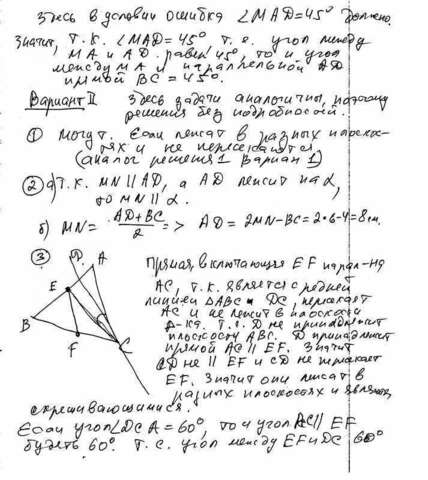 Здесь в условии ошибка ∠MAD=45° должно.
Значит, т.к. ∠MAD=45° т.е. угол между
MA и AD равен 45°, то и угол
между MA и параллельной AD
прямой BC = 45°.
Вариант II Здесь задачи аналогичны, поэтому
решения без подробностей.
① Могут. Если лежат в разных плоскос-
тях и не пересекаются
(аналог решения 1 Вариан 1)
② а) Т.к. MN∥AD, а AD лежит на α,
то MN∥α.
б) MN= (AD+BC)/2 => AD=2MN-BC=2·6-4=8см.
③ Прямая, включающая EF парал-на
AC, т.к. является средней
линией ΔABC и DC, пересекает
AC и не лежит в плоскости
Δ-ка. Т.е. D не принадлежит
плоскости ABC. D принадлежит
прямой AC∥EF. Значит
CD не ∥ EF и CD не пересекает
EF. Значит они лежат в
разных плоскостях и являются
скрешивающимися.
Если угол ∠DCA = 60°, то и угол AC∥EF
будеть 60°. Т.е. угол между EF и DC 60°
D
A
E
B
F
C